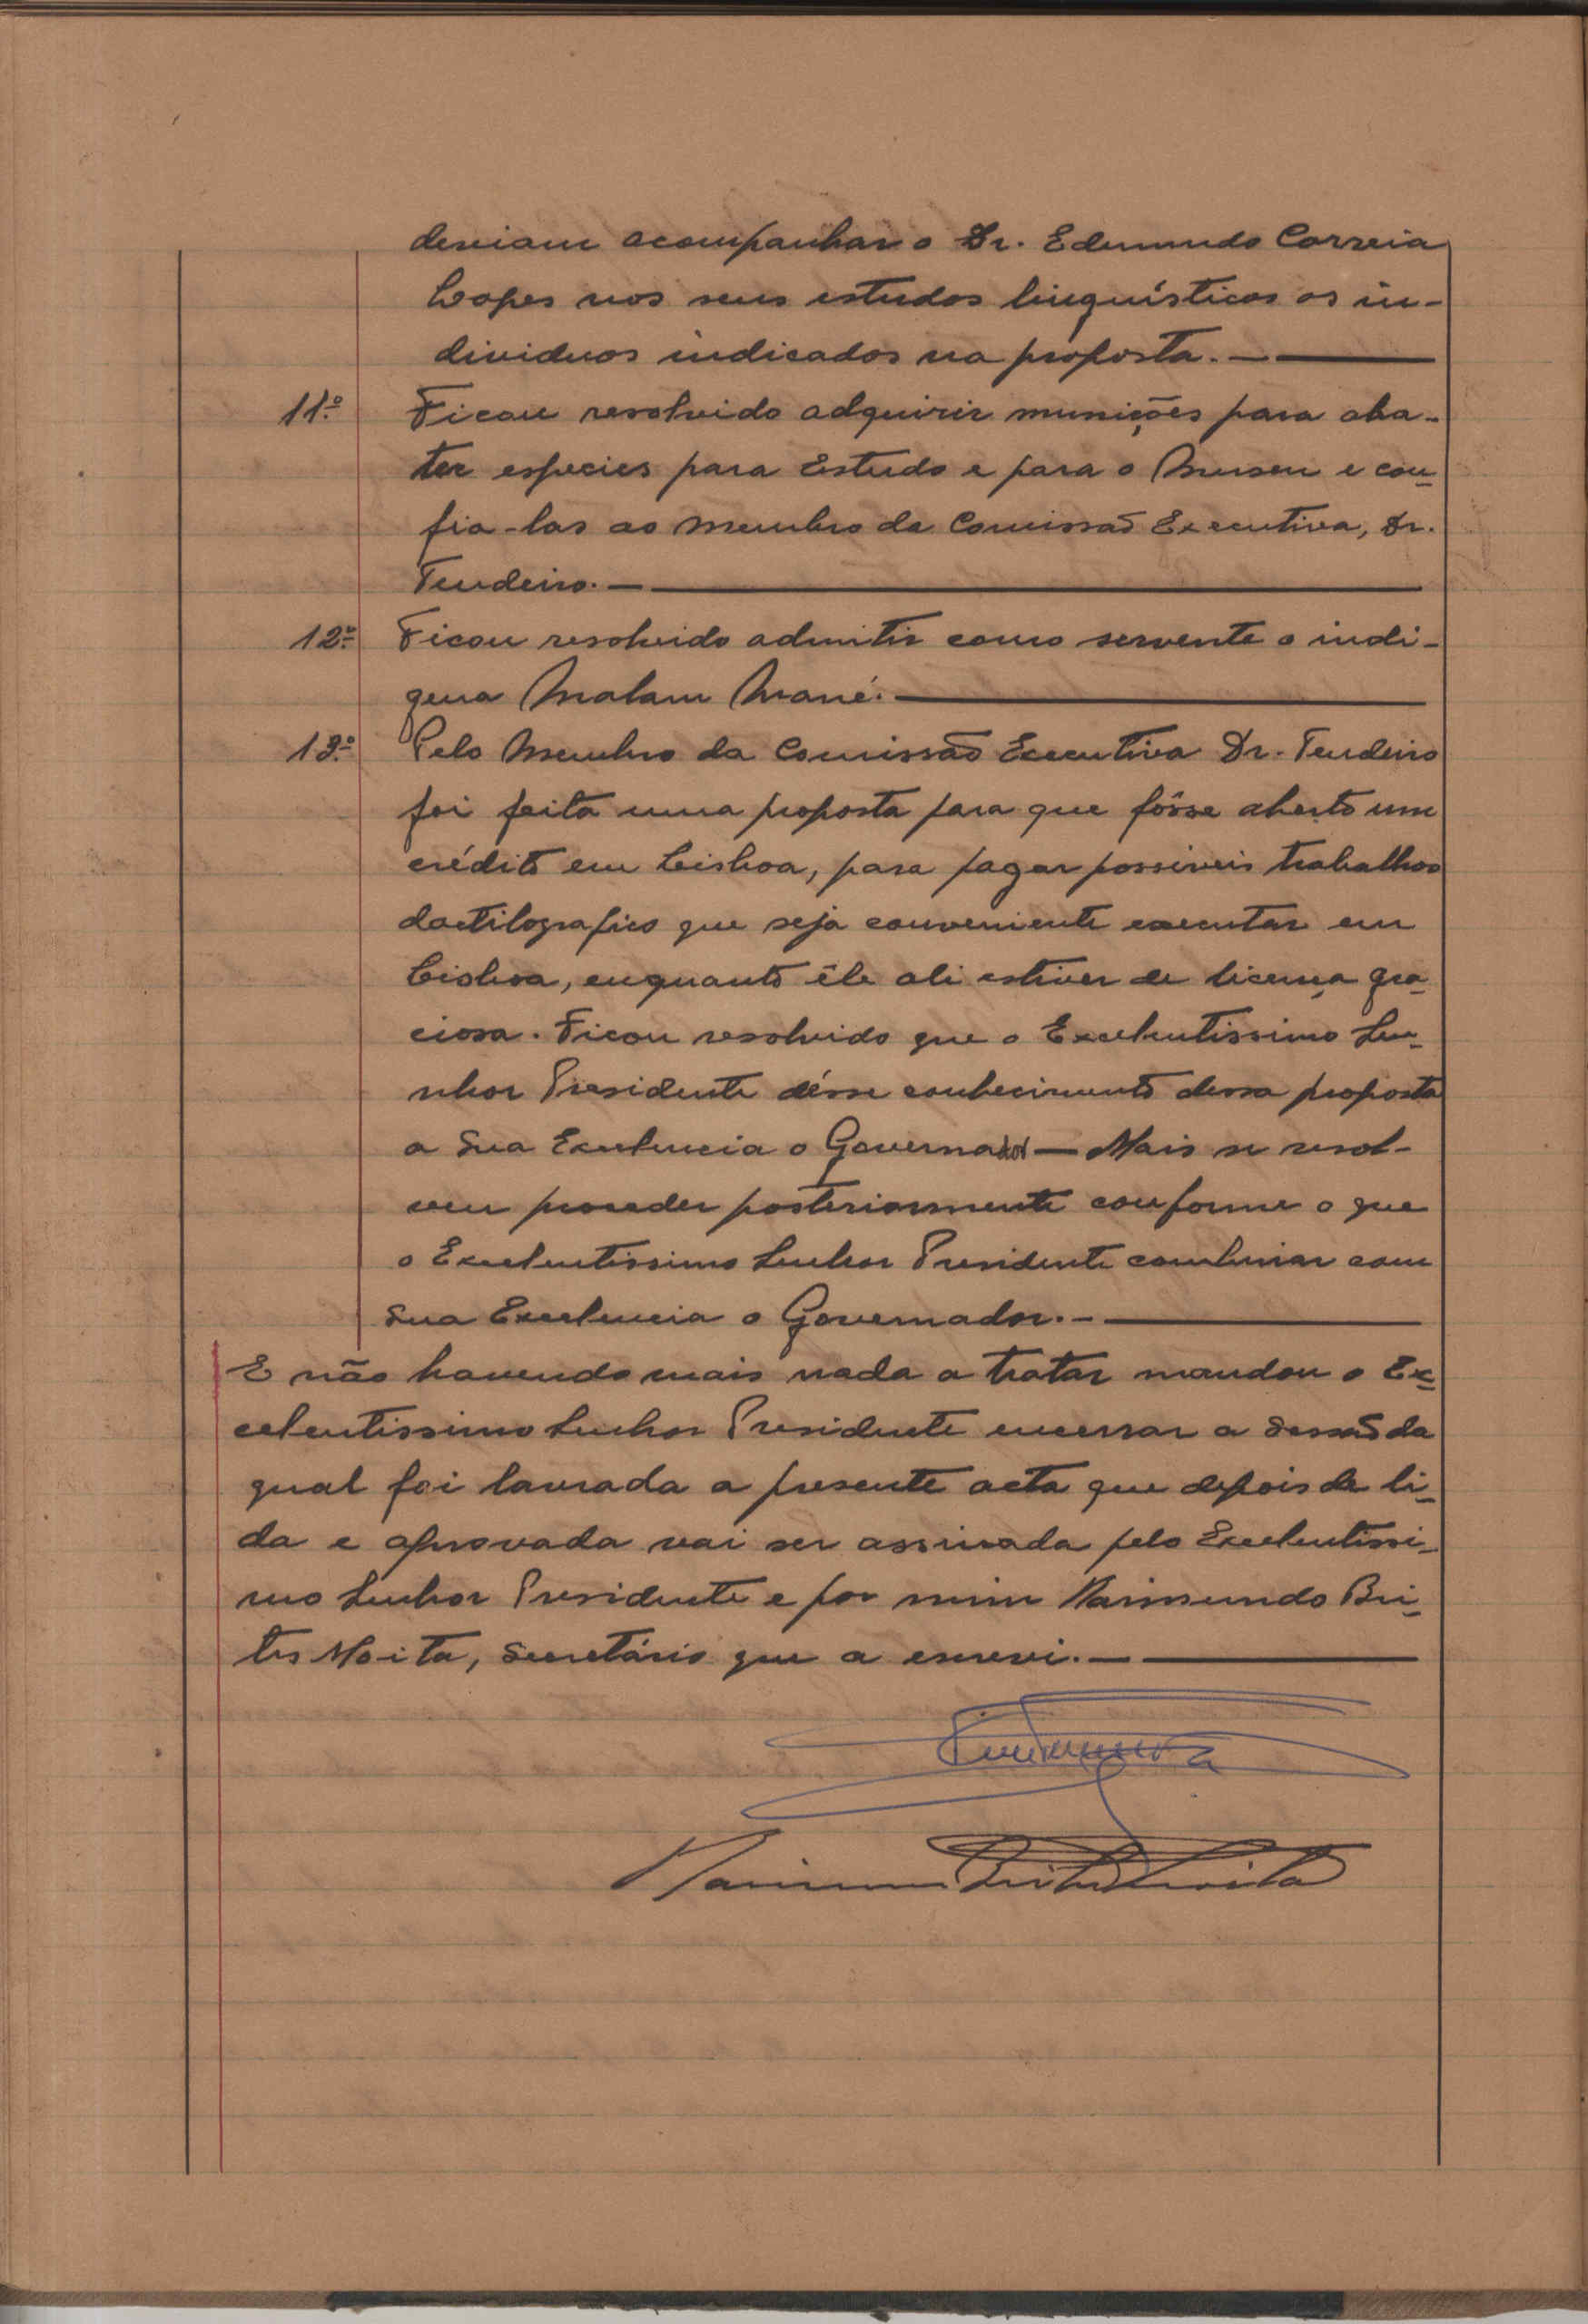 deviam acompanhar o Dr. Edmundo Correia
Lopes nos seus estudos linguísticos os in-
dividuos indicados na proposta. —
11.º Ficou resolvido adquirir munições para aba-
ter especies para Estudo e para o Museu e con-
fia-las ao membro da Comissão Executiva, Dr.
Tendeiro. —
12.º Ficou resolvido admitir como servente o indi-
gena Malam Mané. —
13.º Pelo Membro da Comissão Executiva Dr. Tendeiro
foi feita uma proposta para que fôsse aberto um
crédito em Lisboa, para pagar possiveis trabalhos
dactilografico que seja conveniente executar em
Lisboa, enquanto êle ali estiver de licença gra-
ciosa. Ficou resolvido que o Excelentissimo Se-
nhor Presidente désse conhecimento dessa proposta
a Sua Excelencia o Governador — Mais se resol-
veu proceder posteriormente conforme o que
o Excelentissimo Senhor Presidente combinar com
Sua Excelencia o Governador. —
E não havendo mais nada a tratar mandou o Ex-
celentissimo Senhor Presidente encerrar a Sessão da
qual foi lavrada a presente acta que depois de li-
da e aprovada vai ser assinada pelo Excelentissi-
mo Senhor Presidente e por mim Raimundo Bri-
tes Moita, Secretário que a escrevi. —
Raimundo Brites Moita